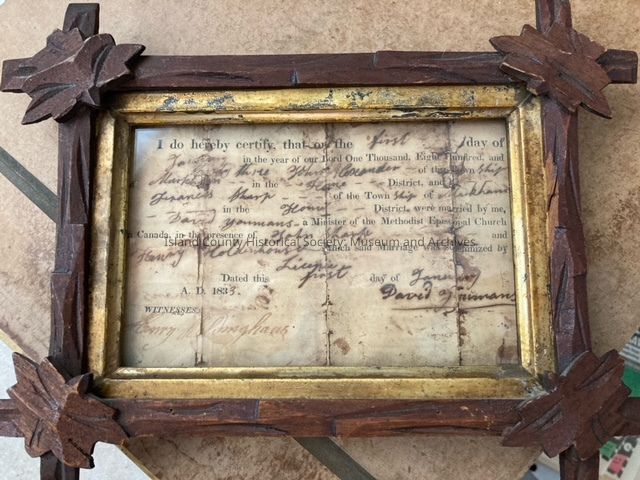 I do hereby certify, that on the first day of
January in the year of our Lord One Thousand, Eight Hundred, and
thirty three John Alexander of the Township
Markham in the Home District, and
Frances Sharp of the Town ship of Markham
in the Home District, were married by me,
David Youmans a Minister of the Methodist Episcopal Church
in Canada, in the presence of John Sharp and
Henry which said Marriage was by
Island County Historical Society, Museum and Archives
Licence
Dated this first day of January
A. D. 1833. David Youmans
WITNESSES
Henry